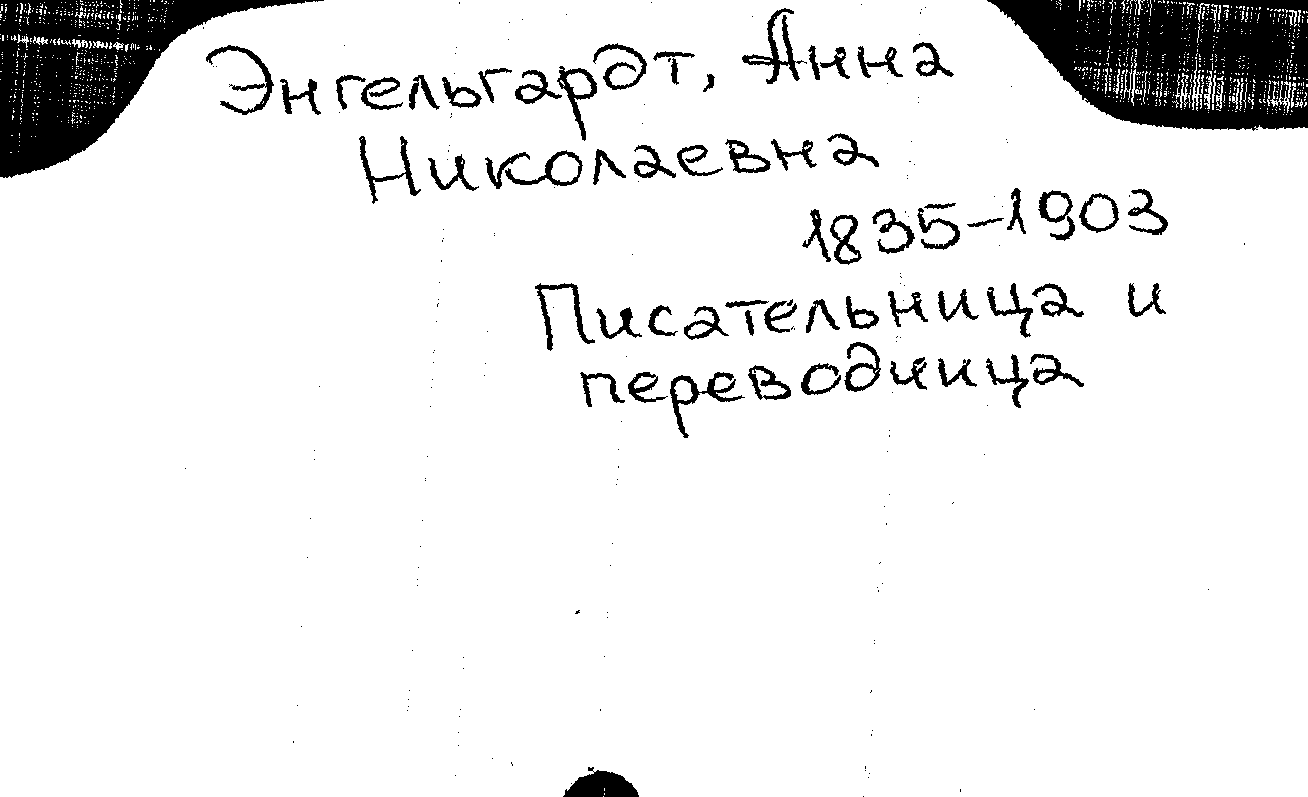 Энгельгардт, Анна
Николаевна
1835-1903
Писательница и
переводчица